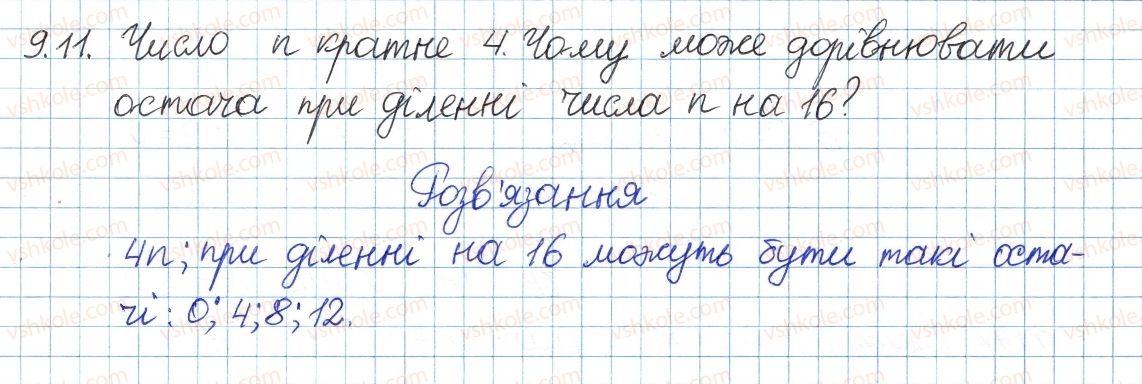 9.11. Число n кратне 4. Чому може дорівнювати
остача при діленні числа n на 16?
Розв'язання
4n; при діленні на 16 можуть бути такі оста-
чі: 0; 4; 8; 12.